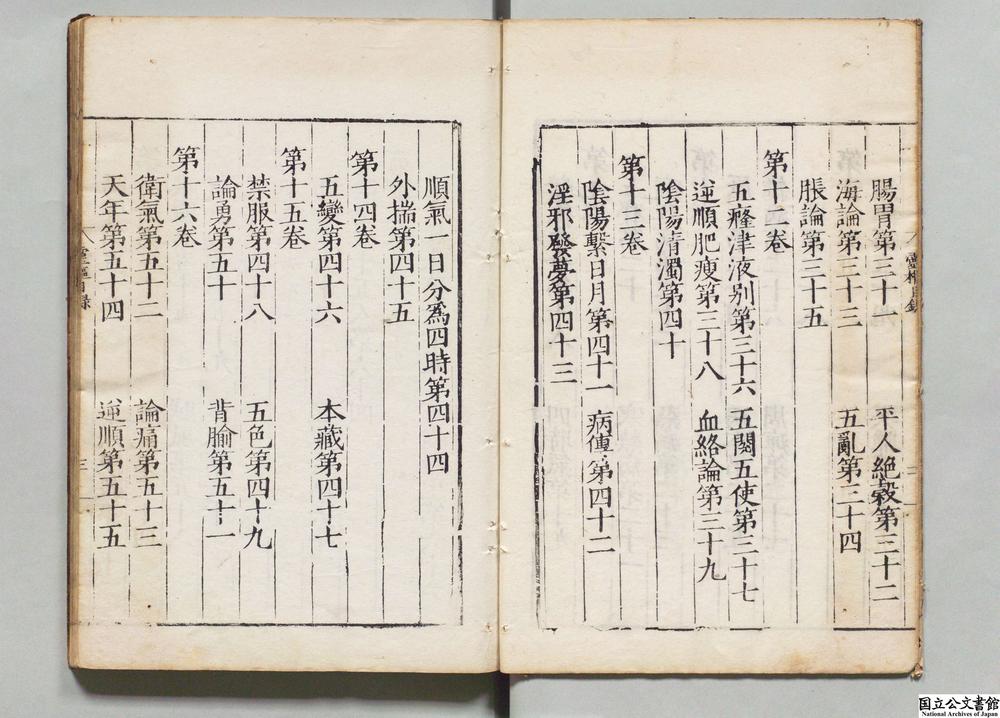 腸胃第三十一 平人絶穀第三十二
海論第三十三 五亂第三十四
脹論第三十五
第十二卷
五癃津液别第三十六 五閱五使第三十七
逆順肥瘦第三十八 血絡論第三十九
陰陽清濁第四十
第十三卷
陰陽繫日月第四十一 病傳第四十二
淫邪發夢第四十三
順氣一日分爲四時第四十四
外揣第四十五
第十四卷
五變第四十六 本藏第四十七
第十五卷
禁服第四十八 五色第四十九
論勇第五十 背腧第五十一
第十六卷
衛氣第五十二 論痛第五十三
天年第五十四 逆順第五十五
靈樞目錄 三
国立公文書館
National Archives of Japan